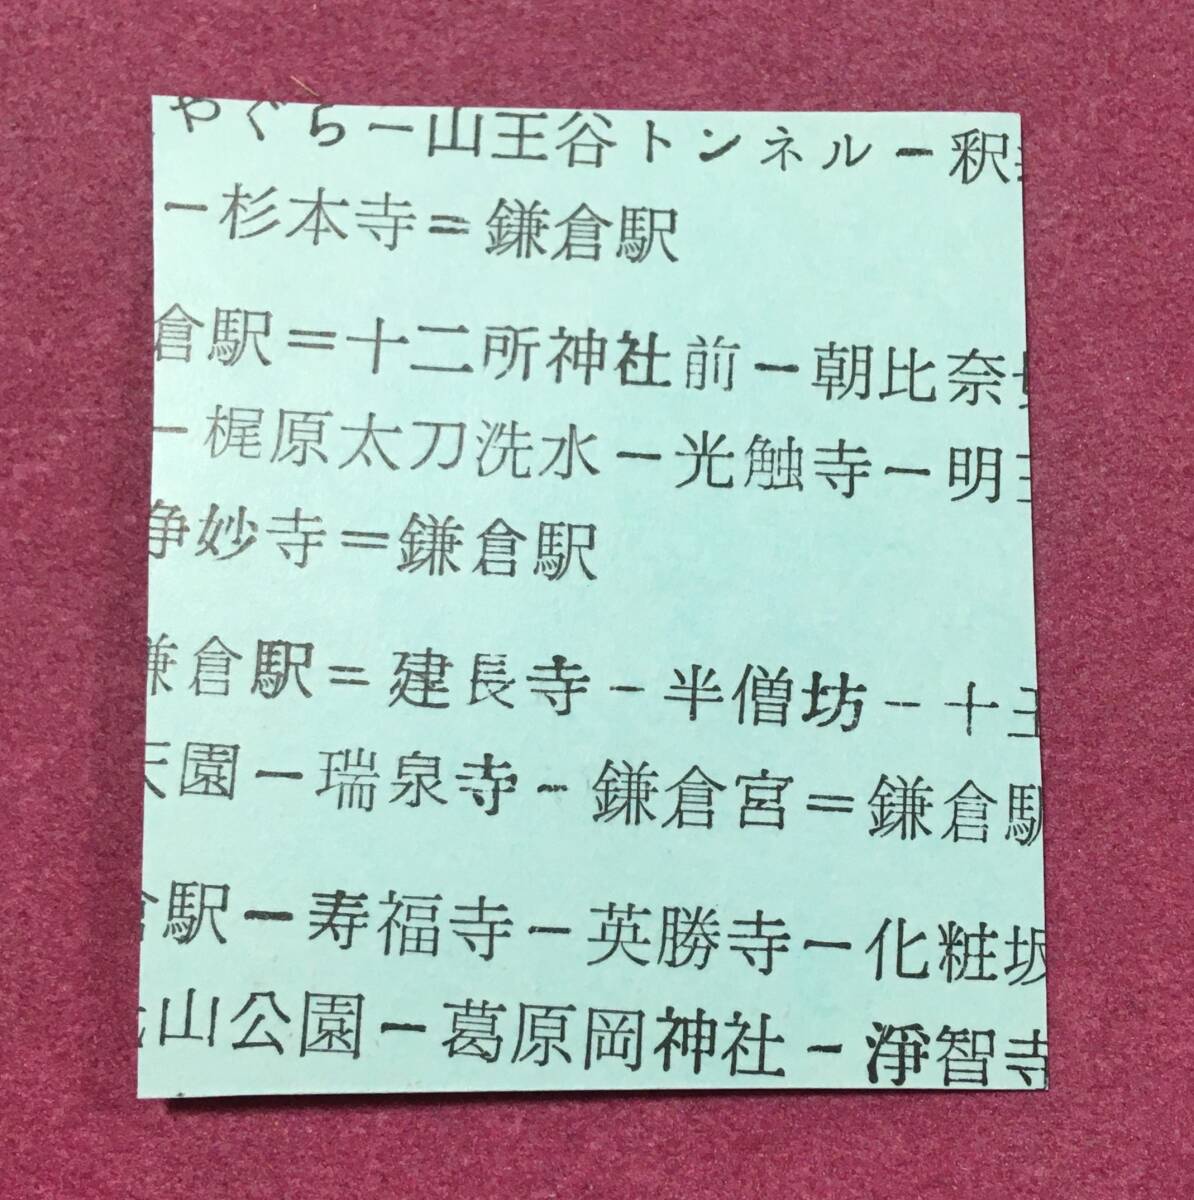 やぐらー山王谷トンネルー釈
ー杉本寺＝鎌倉駅
倉駅＝十二所神社前ー朝比奈
ー梶原太刀洗水ー光触寺ー明王
浄妙寺＝鎌倉駅
鎌倉駅＝建長寺ー半僧坊ー十王
天園ー瑞泉寺ー鎌倉宮＝鎌倉駅
倉駅ー寿福寺ー英勝寺ー化粧坂
山公園ー葛原岡神社ー浄智寺